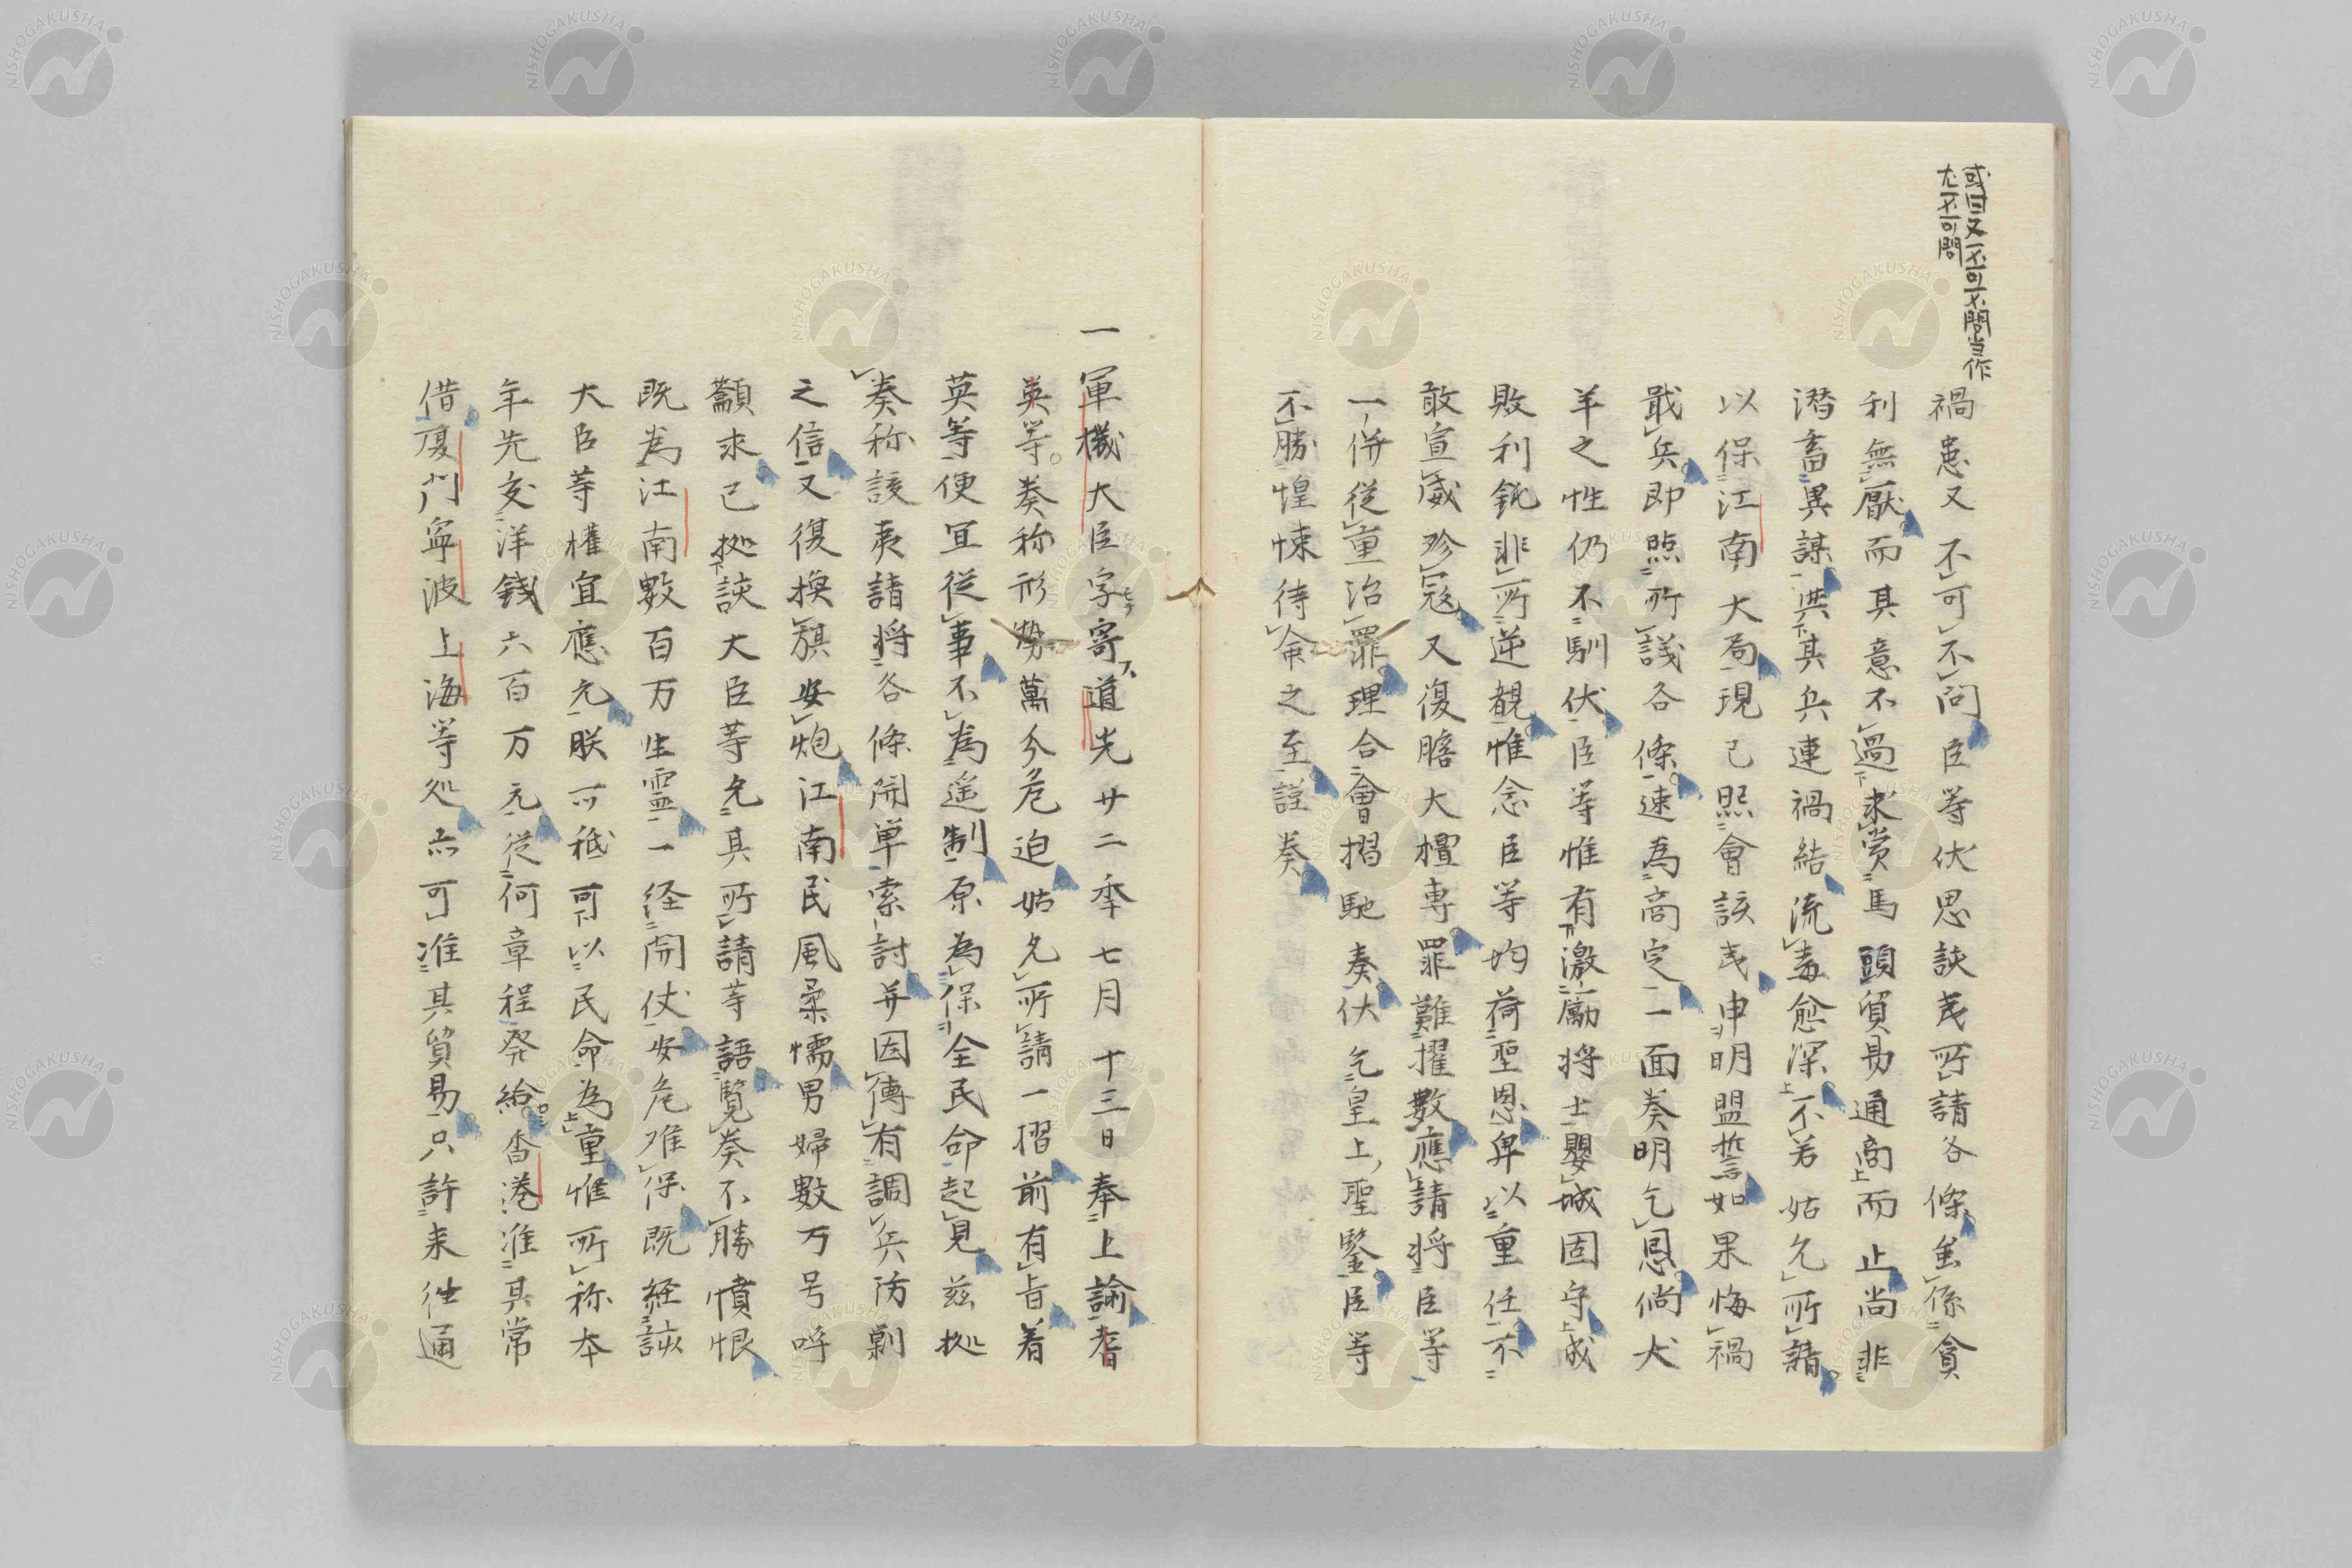 或曰又不可不問当作
尤不可問
禍患又不可不問臣等伏思該夷所請各條虽係貪
利無厭而其意不過求賞馬頭貿易通商而止尚非
潜畜異謀洪其兵連禍結流毒愈深不若姑允所請
以保江南大局現已照會該夷申明盟誓如果悔禍
戢兵即照所議各條速為商定一面奏明乞恩倘犬
羊之性仍不馴伏臣等惟有激勵将士嬰城固守成
敗利鈍非所逆覩惟念臣等均荷聖恩畀以重任不
敢宣威殄寇又復膽大檀専罪難擢數應請将臣等
一併従重治罪理合會摺馳奏伏乞皇上聖鑒臣等
不勝惶悚待命之至謹奏
一軍機大臣字寄道光廿二年七月十三日奉上諭耆
英等奏称形勢萬分危迫姑允所請一摺前有旨着
英等便宜従事不為遥制原為保全民命起見茲拠
奏称該夷請将各條開単索討并因傳有調兵防剿
之信又復換旗安炮江南民風柔懦男婦數万号呼
籲求已拠該大臣等允其所請等語覧奏不勝憤恨
既為江南數百万生霊一経開仗安危难保既経該
大臣等權宜應允朕亦祗可以民命為重惟所称本
年先交洋錢六百万元従何章程発給香港准其常
借厦門寧波上海等処亦可准其貿易只許来往通